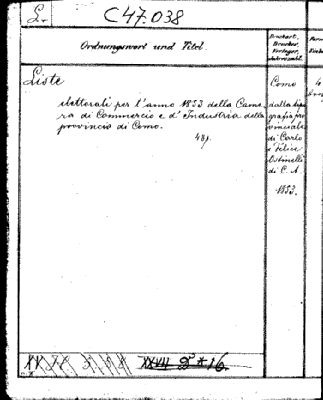 L. C 47.038
Ordnungswort und Titel.
Druckort, Drucker, Verleger, Jahreszahl.
Liste
elettorali per l'anno 1853 della Came
ra di Commercio e d'Industria della
provincia di Como.
48 p.
Como
dalla tipo
grafia pro
vinciale
di Carlo
e Felice
Ostinelli
di C. A.
1853.
XXVII D * 16.